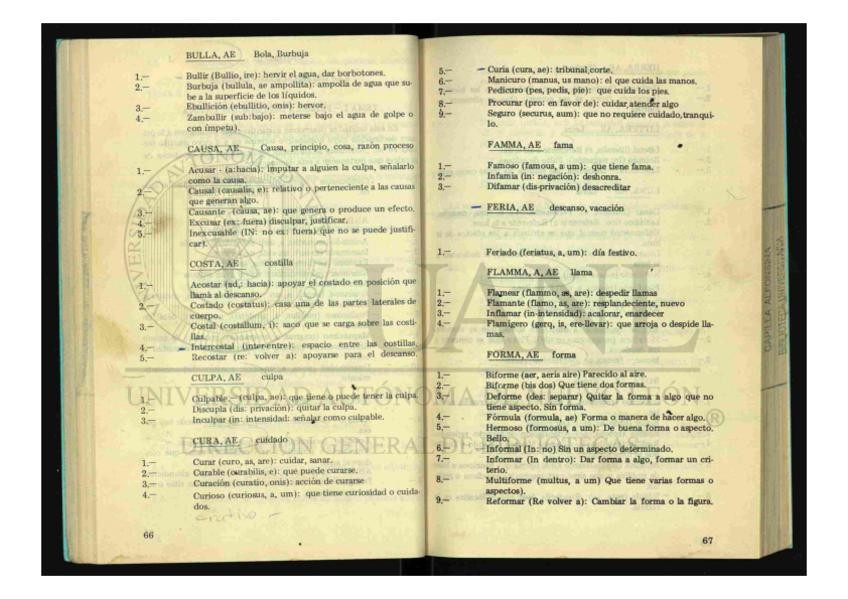 BULLA, AE Bola, Burbuja
1.— Bullir (Bullio, ire): hervir el agua, dar borbotones.
2.— Burbuja (bullula, ae ampollita): ampolla de agua que su-
be a la superficie de los líquidos.
3.— Ebullición (ebullitio, onis): hervor.
4.— Zambullir (sub:bajo): meterse bajo el agua de golpe o
con ímpetu).
CAUSA, AE Causa, principio, cosa, razón proceso
1.— Acusar - (a:hacia): imputar a alguien la culpa, señalarlo
como la causa.
2.— Causal (causalis, e): relativo o perteneciente a las causas
que generan algo.
3.— Causante (causa, ae): que genera o produce un efecto.
4.— Excusar (ex: fuera) disculpar, justificar.
5.— Inexcusable (IN: no ex: fuera) que no se puede justifi-
car).
COSTA, AE costilla
1.— Acostar (ad,: hacia): apoyar el costado en posición que
llama al descanso.
2.— Costado (costatus): casa una de las partes laterales de
cuerpo.
3.— Costal (costallum, i): saco que se carga sobre las costi-
llas.
4.— Intercostal (inter-entre): espacio entre las costillas,
5.— Recostar (re: volver a): apoyarse para el descanso.
CULPA, AE culpa
1.— Culpable.— (culpa, ae): que tiene o puede tener la culpa.
2.— Disculpa (dis: privación): quitar la culpa.
3.— Inculpar (in: intensidad: señalar como culpable.
CURA, AE cuidado
1.— Curar (curo, as, are): cuidar, sanar.
2.— Curable (curabilis, e): que puede curarse.
3.— Curación (curatio, onis): acción de curarse
4.— Curioso (curiosus, a, um): que tiene curiosidad o cuida-
dos.
66
5.— Curia (cura, ae): tribunal,corte.
6.— Manicuro (manus, us mano): el que cuida las manos.
7.— Pedicuro (pes, pedis, pie): que cuida los pies.
8.— Procurar (pro: en favor de): cuidar,atender algo
9.— Seguro (securus, aum): que no requiere cuidado,tranqui-
lo.
FAMMA, AE fama
1.— Famoso (famous, a um): que tiene fama.
2.— Infamia (in: negación): deshonra.
3.— Difamar (dis-privación) desacreditar
FERIA, AE descanso, vacación
1.— Feriado (feriatus, a, um): día festivo.
FLAMMA, A, AE llama
1.— Flamear (flammo, as, are): despedir llamas
2.— Flamante (flamo, as, are): resplandeciente, nuevo
3.— Inflamar (in-intensidad): acalorar, enardecer
4.— Flamígero (gerq, is, ere-llevar): que arroja o despide lla-
mas.
FORMA, AE forma
1.— Biforme (aer, aeris aire) Parecido al aire.
2.— Biforme (bis dos) Que tiene dos formas.
3.— Deforme (des: separar) Quitar la forma a algo que no
tiene aspecto. Sin forma.
4.— Fórmula (formula, ae) Forma o manera de hacer algo.
5.— Hermoso (formosus, a um): De buena forma o aspecto.
Bello.
6.— Informal (In: no) Sin un aspecto determinado.
7.— Informar (In dentro): Dar forma a algo, formar un cri-
terio.
8.— Multiforme (multus, a um) Que tiene varias formas o
aspectos).
9.— Reformar (Re volver a): Cambiar la forma o la figura.
67
UANL
UNIVERSIDAD AUTÓNOMA DE NUEVO LEÓN
®
DIRECCIÓN GENERAL DE BIBLIOTECAS
CAPILLA ALFONSINA
BIBLIOTECA UNIVERSITARIA